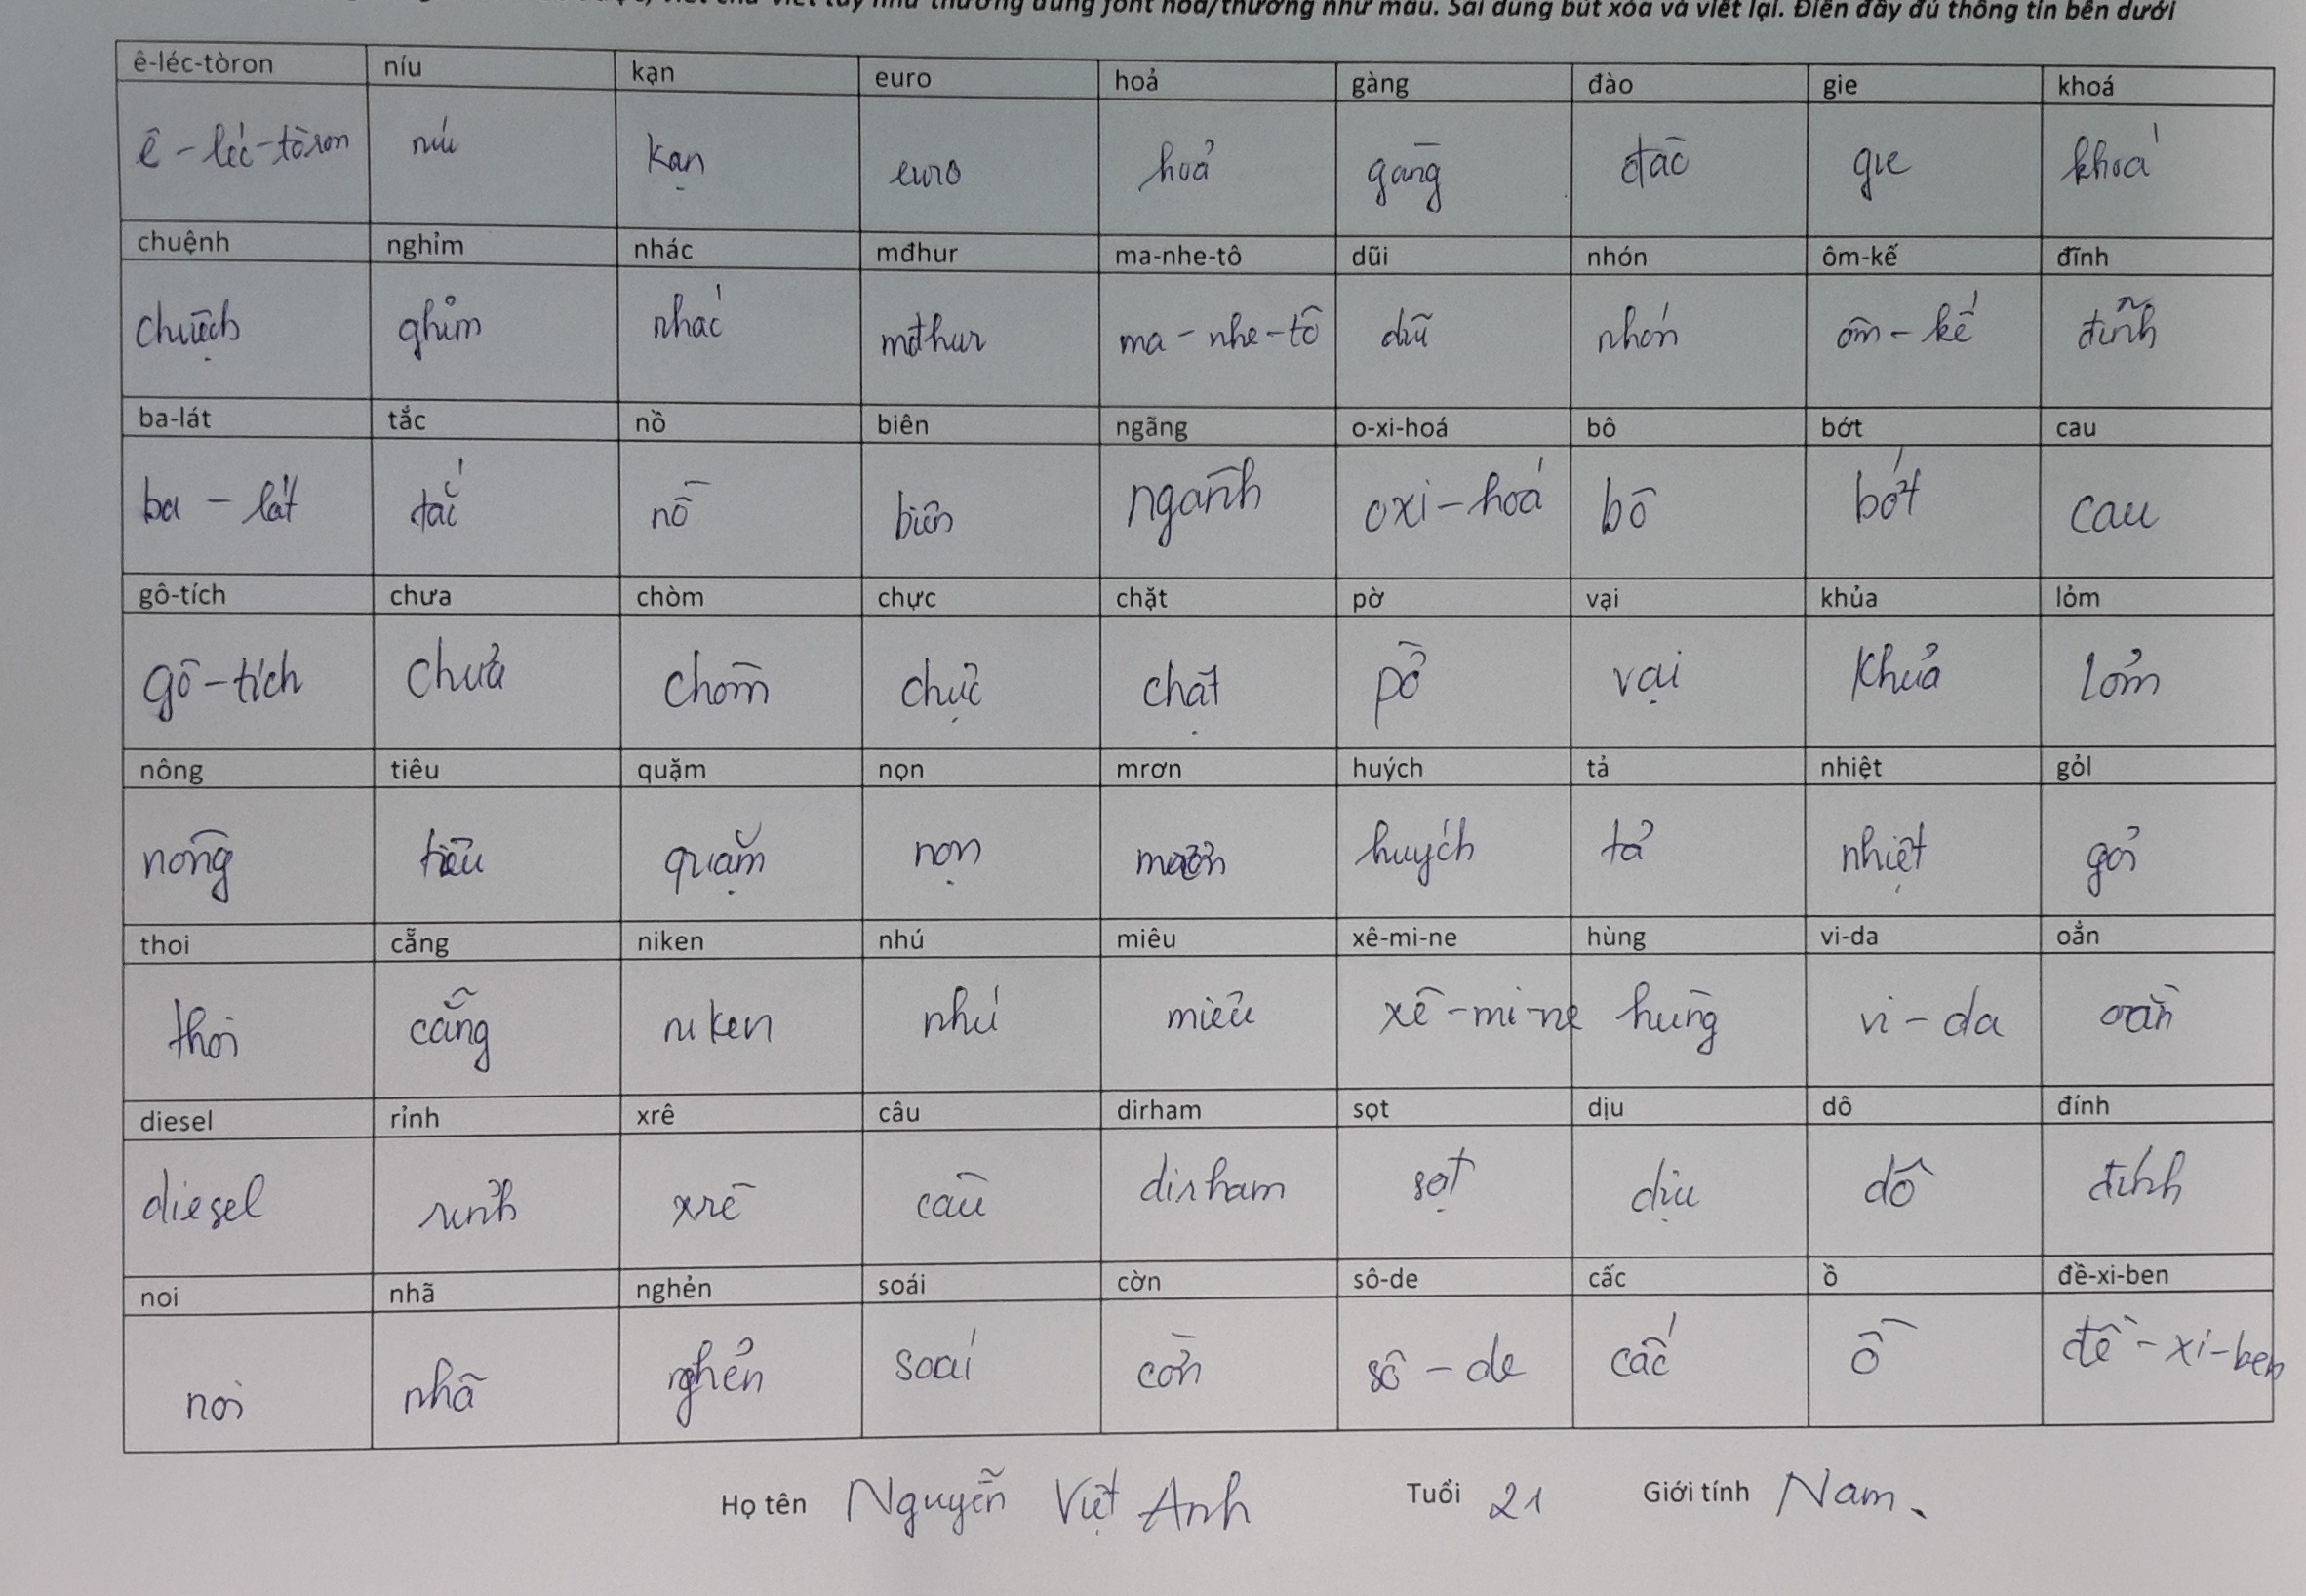 dùng font hoa/thường như mẫu. Sai dùng bút xóa và viết lại. Điền đầy đủ thông tin bên dưới
ê-léc-tòron níu kạn euro hoả gàng đào gie khoá
ê-léc-tòron níu kạn euro hoả gàng đào gie khoá
chuệnh nghỉm nhác mđhur ma-nhe-tô dũi nhón ôm-kế đĩnh
chuệch ghỉm nhác mđhur ma-nhe-tô dũi nhón ôm-kế đĩnh
ba-lát tắc nồ biên ngãng o-xi-hoá bô bớt cau
ba-lát tắc nồ biên ngành oxi-hoá bô bớt cau
gô-tích chưa chòm chực chặt pờ vại khủa lỏm
gô-tích chưa chòm chực chặt pờ vại khủa lỏm
nông tiêu quặm nọn mrơn huých tả nhiệt gỏi
nông tiêu quặm nọn mrơn huých tả nhiệt gỏi
thoi cẵng niken nhú miêu xê-mi-ne hùng vi-da oản
thoi cẵng niken nhú miêu xê-mi-ne hùng vi-da oằn
diesel rỉnh xrê câu dirham sọt dịu dô đính
diesel rỉnh xrê câu dirham sọt dịu dô đính
noi nhã nghẻn soái cờn sô-de cấc ồ đề-xi-ben
noi nhã nghẻn soái cờn sô-de cấc ồ đề-xi-ben
Họ tên Nguyễn Việt Anh Tuổi 21 Giới tính Nam.